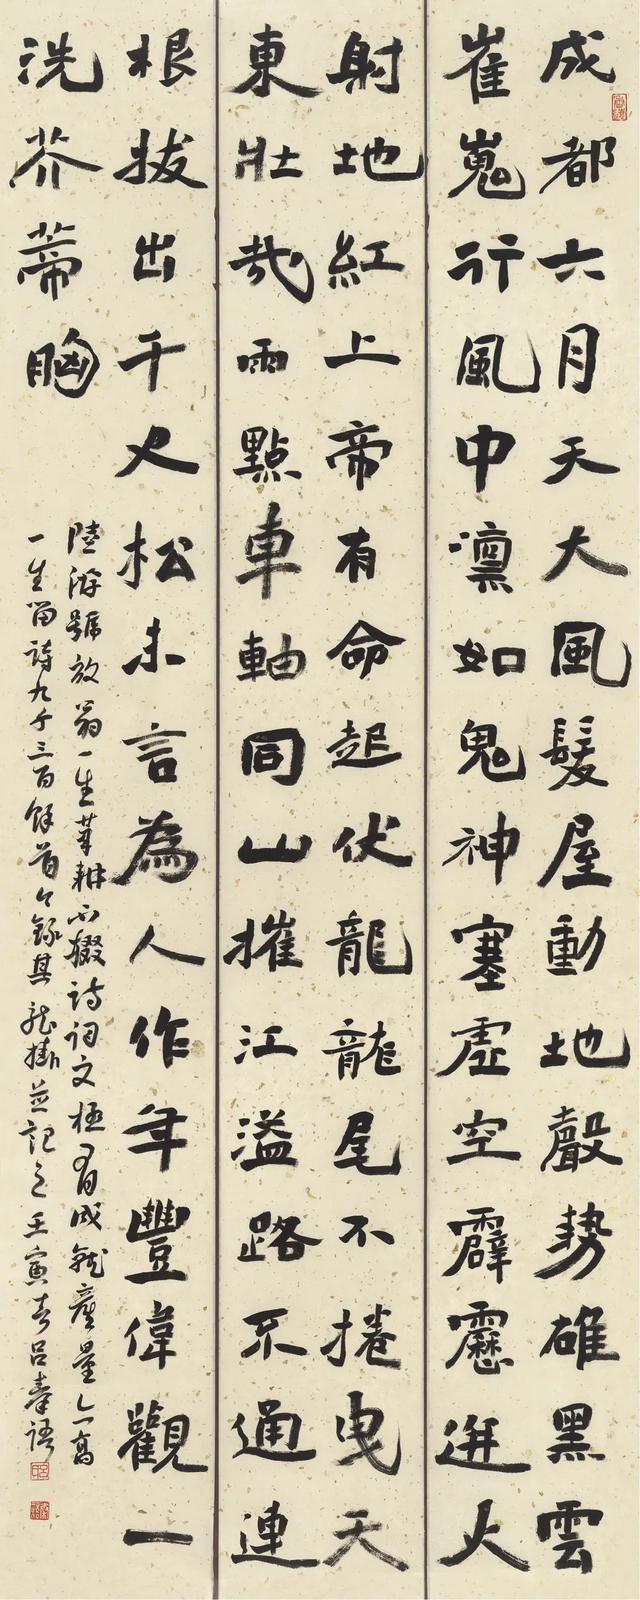 成都六月天大風髮屋動地聲勢雄黑雲
崔嵬行風中凜如鬼神塞虛空霹靂迸火
射地紅上帝有命起伏龍龍尾不捲曳天
東壯哉雨點車軸同山摧江溢路不通連
根拔出千尺松未言為人作年豐偉觀一
洗芥蒂胸
陸游號放翁一生筆耕不輟詩詞文極有成就產量亦高
一生留詩九千三百餘首今錄其龍掛並記之壬寅春呂